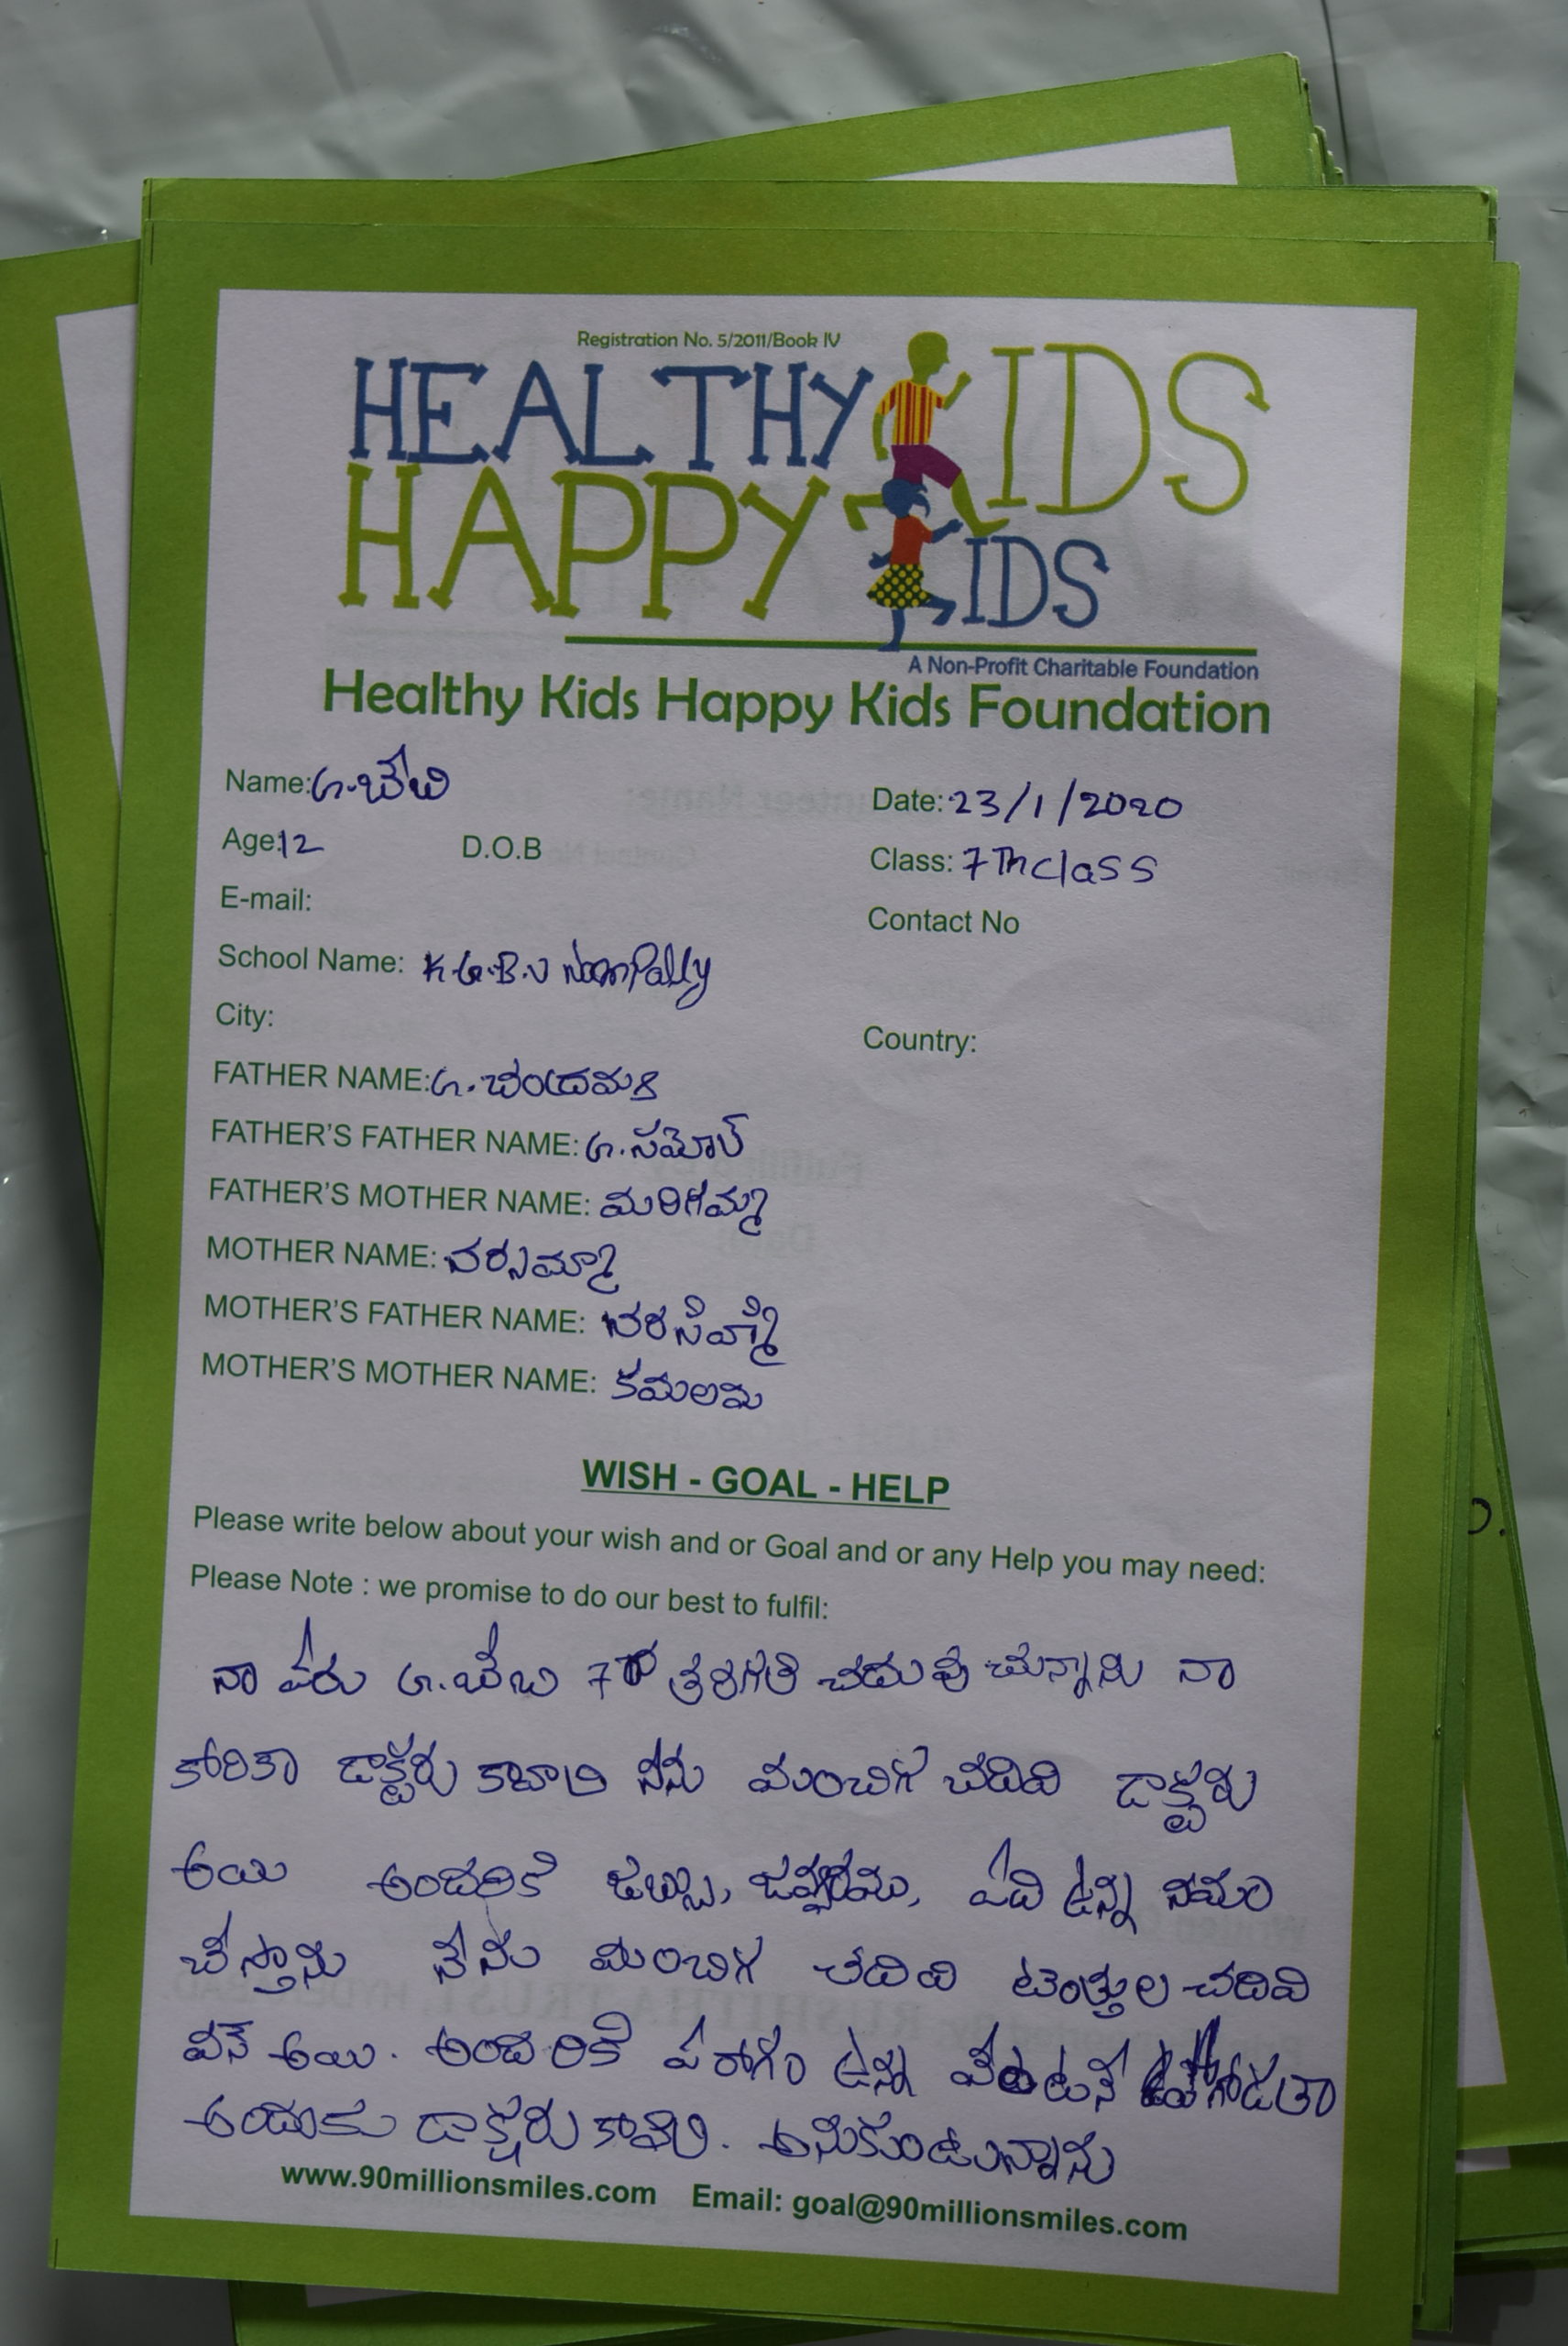 Registration No. 5/2011/Book IV
HEALTHY KIDS
HAPPY KIDS
A Non-Profit Charitable Foundation
Healthy Kids Happy Kids Foundation
Name: G.బేబి
Date: 23/1/2020
Age: 12 D.O.B
Class: 7Th class
E-mail:
Contact No
School Name: K.G.B.V
City:
Country:
FATHER NAME: G.
FATHER'S FATHER NAME: G.సమోల్
FATHER'S MOTHER NAME: మరిగమ్మ
MOTHER NAME:
MOTHER'S FATHER NAME:
MOTHER'S MOTHER NAME: కమలమ
WISH - GOAL - HELP
Please write below about your wish and or Goal and or any Help you may need:
Please Note : we promise to do our best to fulfil:
నా పేరు G.బేబి 7వ తరగతి చదువు చున్నాను నా
కోరికా డాక్టరు కావాలి నేను మంచిగ చదివి డాక్టరు
అయి అందరికి జబ్బు, ఏది ఉన్న నయం
చేస్తాను నేను మంచిగ చదివి చదివి
అయి. అందరికి ఉన్న
అందుకు డాక్టరు కావాలి. అనుకుంటున్నాను
www.90millionsmiles.com Email: goal@90millionsmiles.com